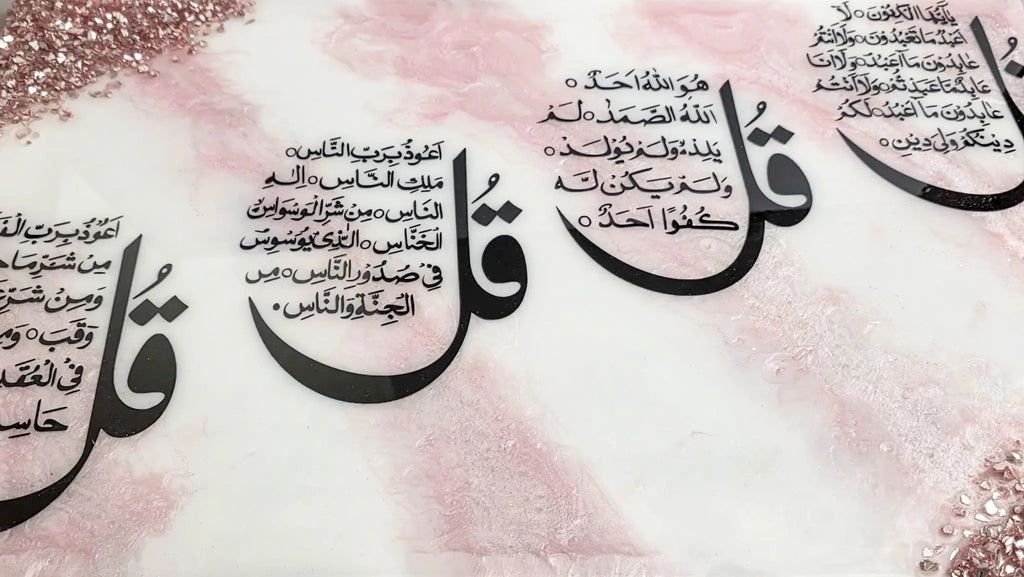 قُلْ
يَاَيُّهَا الْكٰفِرُوْنَ ○ لَا
اَعْبُدُ مَا تَعْبُدُوْنَ ○ وَلَا اَنْتُمْ
عَابِدُوْنَ مَا اَعْبُدُ ○ وَلَا اَنَا
عَابِدٌ مَّا عَبَدْتُّمْ ○ وَلَا اَنْتُمْ
عَابِدُوْنَ مَا اَعْبُدُ ○ لَكُمْ
دِيْنُكُمْ وَلِيَ دِيْنِ ○
قُلْ
هُوَ اللّٰهُ اَحَدٌ ○
اَللّٰهُ الصَّمَدُ ○ لَمْ
يَلِدْ ○ وَلَمْ يُوْلَدْ ○
وَلَمْ يَكُنْ لَّهٗ
كُفُوًا اَحَدٌ ○
قُلْ
اَعُوْذُ بِرَبِّ النَّاسِ ○
مَلِكِ النَّاسِ ○ اِلٰهِ
النَّاسِ ○ مِنْ شَرِّ الْوَسْوَاسِ
الْخَنَّاسِ ○ الَّذِىْ يُوَسْوِسُ
فِيْ صُدُوْرِ النَّاسِ ○ مِنَ
الْجِنَّةِ وَالنَّاسِ ○
قُلْ
اَعُوْذُ بِرَبِّ
مِنْ شَرِّ مَا
وَمِنْ شَرِّ
وَقَبَ ○
فِي الْعُقَدِ